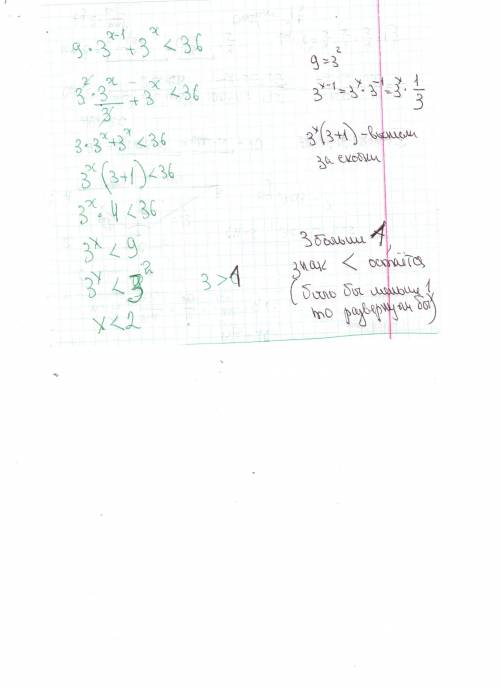 9 · 3^(x-1) + 3^x < 36
3² · 3^x/3 + 3^x < 36
3 · 3^x + 3^x < 36
3^x (3+1) < 36
3^x · 4 < 36
3^x < 9
3^x < 3²
x < 2
3 > 1
9 = 3²
3^(x-1) = 3^x · 3^(-1) = 3^x · 1/3
3^x (3+1) - вынесли
за скобки
3 больше 1,
знак < остаётся
(было бы меньше 1
то развернули бы)